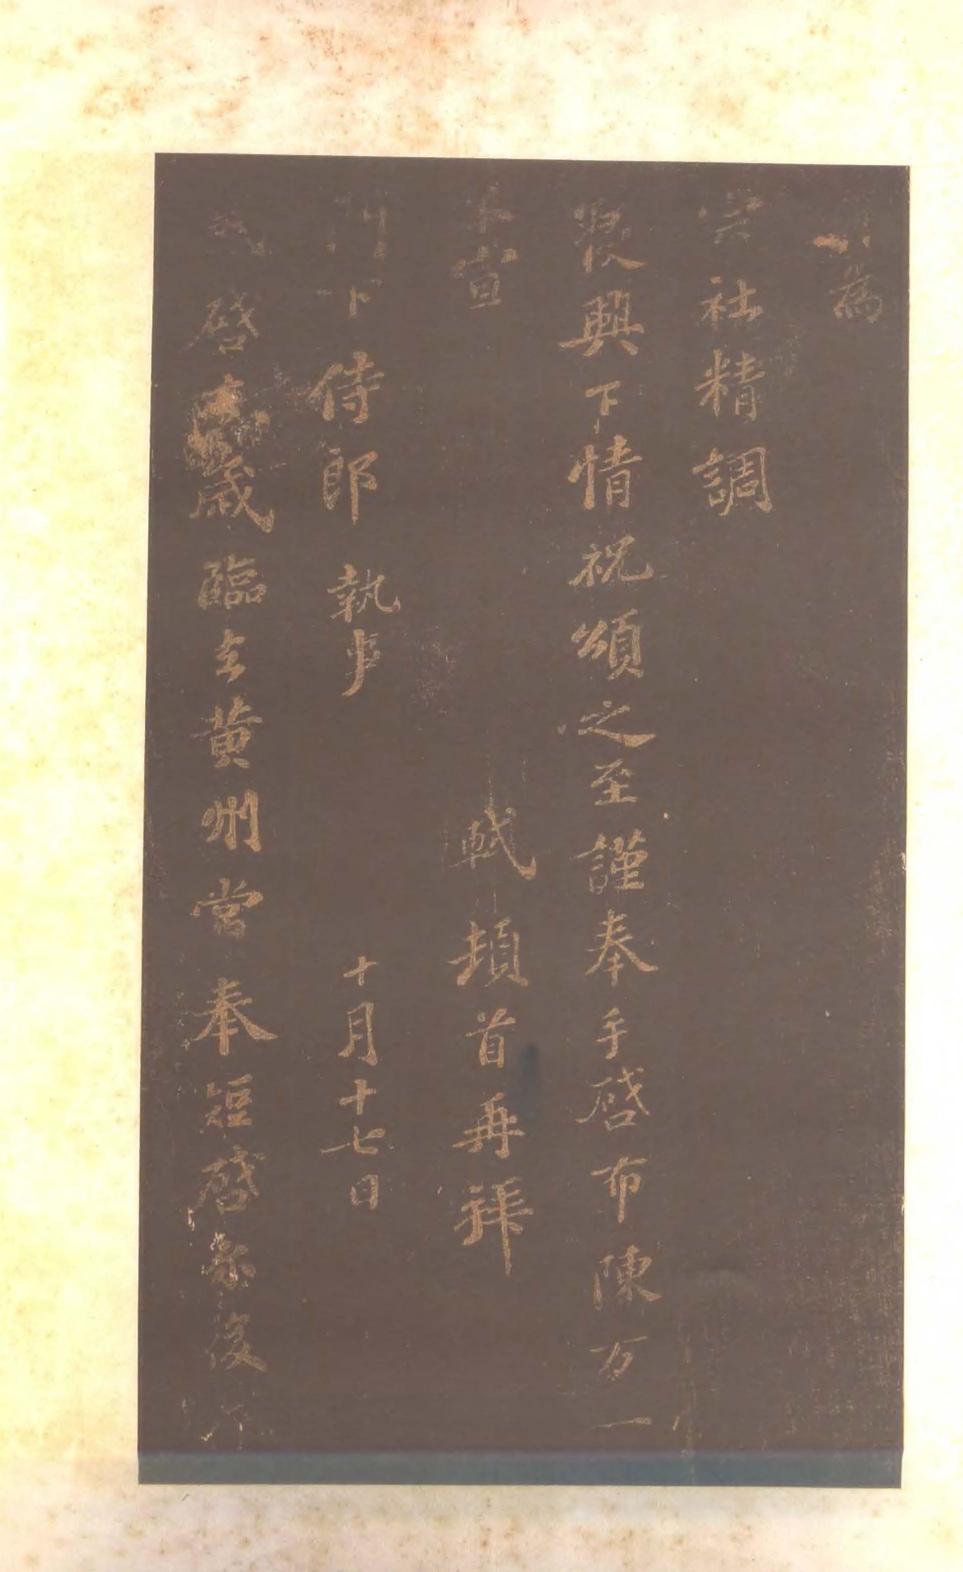 為
宗社精調
寢興下情祝頌之至謹奉手啓布陳万一
不宣
軾頓首再拜
門下侍郎執事
十月十七日
軾啓歲臨去黃州嘗奉短啓尔後不